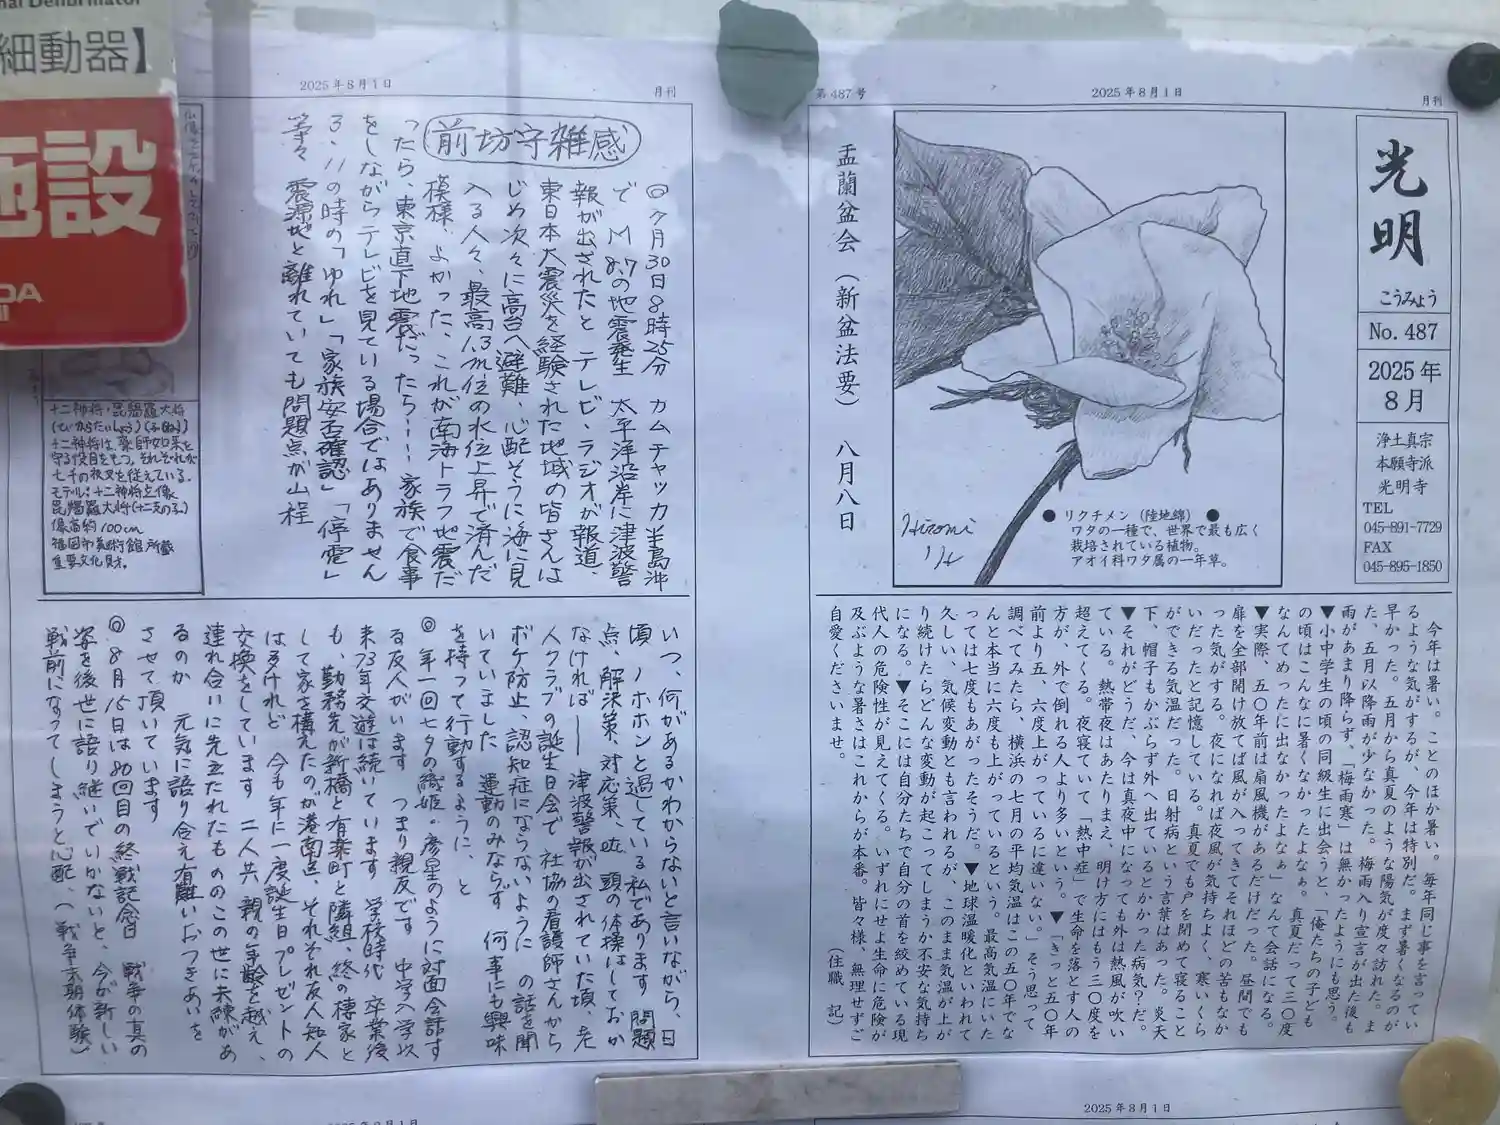 月刊
2025年8月1日
第487号
光明
こうみょう
No. 487
2025年
8月
浄土真宗
本願寺派
光明寺
TEL
045-891-7729
FAX
045-895-1850
● リクチメン（陸地綿） ●
ワタの一種で、世界で最も広く
栽培されている植物。
アオイ科ワタ属の一年草。
Hiromi
盂蘭盆会（新盆法要）　八月八日
今年は暑い。ことのほか暑い。毎年同じ事を言ってい
るような気がするが、今年は特別だ。まず暑くなるのが
早かった。五月から真夏のような陽気が度々訪れた。ま
た、五月以降雨が少なかった。梅雨入り宣言が出た後も
雨があまり降らず、「梅雨寒」は無かったようにも思う。
▼小中学生の頃の同級生に出会うと、「俺たちの子ども
の頃はこんなに暑くなかったよなぁ。真夏だって三〇度
なんてめったに出なかったよなぁ」なんて会話になる。
▼実際、五〇年前は扇風機があるだけだった。昼間でも
扉を全部開け放てば風が入ってきてそれほどの苦もなか
った気がする。夜になれば夜風が気持ちよく、寒いくら
いだったと記憶している。真夏でも戸を閉めて寝ること
ができる気温だった。日射病という言葉はあった。炎天
下、帽子もかぶらず外へ出ているとかかった病気？だ。
▼それがどうだ、今は真夜中になっても外は熱風が吹い
ている。熱帯夜はあたりまえ、明け方にはもう三〇度を
超えてくる。夜寝ていて「熱中症」で生命を落とす人の
方が、外で倒れる人より多いという。▼「きっと五〇年
前より五、六度上がっているに違いない。」そう思って
調べてみたら、横浜の七月の平均気温はこの五〇年でな
んと本当に六度も上がっているという。最高気温にいた
っては七度もあがったそうだ。▼地球温暖化といわれて
久しい、気候変動とも言われるが、このまま気温が上が
り続けたらどんな変動が起こってしまうか不安な気持ち
になる。▼そこには自分たちで自分の首を絞めている現
代人の危険性が見えてくる。いずれにせよ生命に危険が
及ぶような暑さはこれからが本番。皆々様、無理せずご
自愛くださいませ。
（住職　記）
月刊
2025年8月1日
前坊守雑感
◎7月30日8時25分　カムチャッカ半島沖
で M8.7の地震発生　太平洋沿岸に津波警
報が出されたと テレビ、ラジオが報道、
東日本大震災を経験された地域の皆さんは
じめ次々に高台へ避難、心配そうに海に見
入る人々、最高1.3m位の水位上昇で済んだ
模様、よかった、これが南海トラフ地震だ
ったら、東京直下地震だったら……家族で食事
をしながらテレビを見ている場合ではありません
3.11の時の「ゆれ」「家族安否確認」「停電」
等々　震源地と離れていても問題点が山程
いつ、何があるかわからないと言いながら、日
頃ノホホンと過している私であります　問題
点、解決策、対応策、　頭の体操はしておか
なければ——　津波警報が出されていた頃、老
人クラブの誕生日会で　社協の看護師さんから
ボケ防止、認知症にならないように の話を聞
いていました　運動のみならず　何事にも興味
を持って行動するように、と
◎ 年一回七夕の織姫・彦星のように対面会話す
る友人がいます　つまり親友です　中学入学以
来73年交遊は続いています　学校時代　卒業後
も、勤務先が新橋と有楽町と隣組、終の棲家と
して家を構えたのが港南区、それぞれ友人知人
は多けれど　今も年に一度誕生日プレゼントの
交換をしています　二人共　親の年齢を越え、
連れ合いに先立たれたもののこの世に未練があ
るのか　元気に語り合え有難いおつきあいを
させて頂いています
◎ 8月15日は80回目の終戦記念日　戦争の真の
姿を後世に語り継いでいかないと、今が新しい
戦前になってしまうと心配、（戦争末期体験）
十二神将・毘羯羅大将
十二神将は、薬師如来を
守る役目をもつ。それぞれが
七千の夜叉を従えている。
モデル：十二神将立像
毘羯羅大将（十二支の子）
像高約100cm
福岡市美術館所蔵
重要文化財。
細動器】
施設
2025年8月1日
2025年8月1日